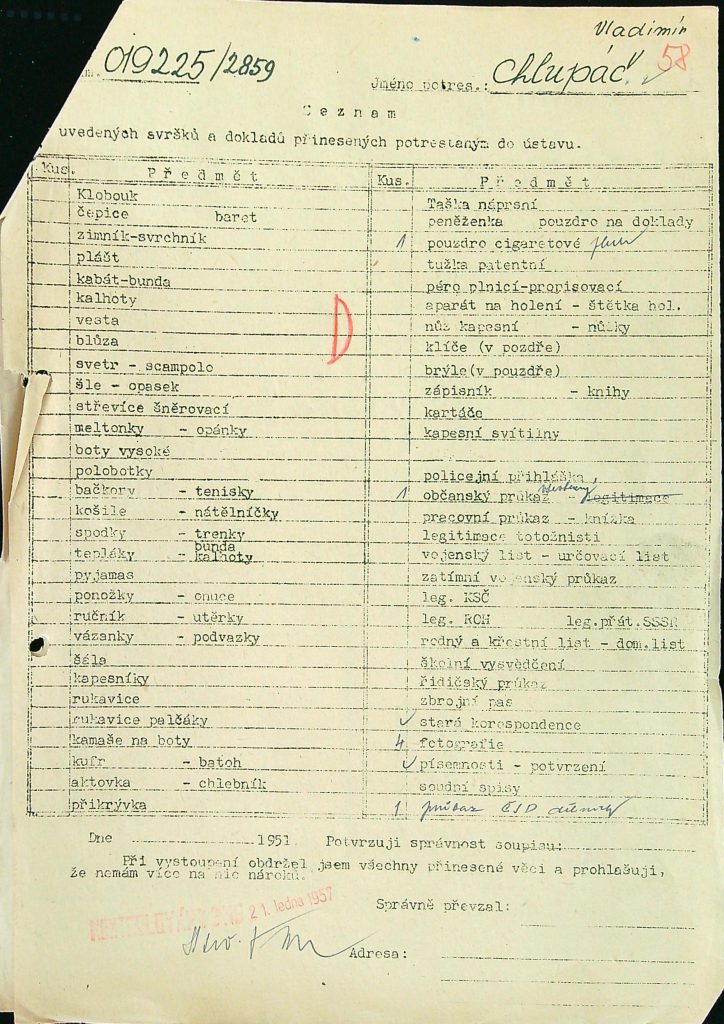 Vladimír
58
019225/2859
Jméno potres.: Chlupáč
Seznam
uvedených svršků a dokladů přinesených potrestaným do ústavu.
Kus. Předmět
Klobouk
čepice baret
zimník-svrchník
plášt
kabát-bunda
kalhoty
vesta
blůza
svetr - scampolo
šle - opasek
střevíce šněrovací
meltonky - opánky
boty vysoké
polobotky
bačkory - tenisky
košile - nátělníčky
spodky - trenky
tepláky - bunda kalhoty
pyjamas
ponožky - onuce
ručník - utěrky
vázanky - podvazky
šála
kapesníky
rukavice
rukavice palčáky
kamaše na boty
kufr - batoh
aktovka - chlebník
přikrývka
D
Kus. Předmět
Taška náprsní
peněženka pouzdro na doklady
1 pouzdro cigaretové
tužka patentní
péro plnicí-propisovací
aparát na holení - štětka hol.
nůž kapesní - nůžky
klíče (v pozdře)
brýle(v pouzdře)
zápisník - knihy
kartáče
kapesní svítilny
policejní přihláška
1 občanský průkaz legitimace
pracovní průkaz - knížka
legitimace totožnisti
vojenský list - určovací list
zatímní vojenský průkaz
leg. KSČ
leg. ROH leg.přát.SSSR
rodný a křestní list - dom.list
školní vysvědčení
řidičský průkaz
zbrojní pas
stará korespondence
4 fotografie
písemnosti - potvrzení
soudní spisy
1 průkaz
Dne 1951. Potvrzuji správnost soupisu:
Při vystoupení obdržel jsem všechny přinesené věci a prohlašuji,
že nemám více na nic nároků.
21. ledna 1957
Správně převzal:
Adresa: